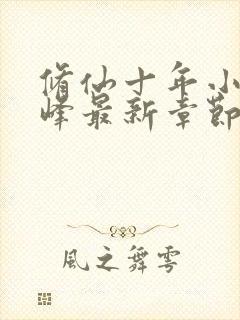 脩仙十年.小
峰最新章節
風之舞雩